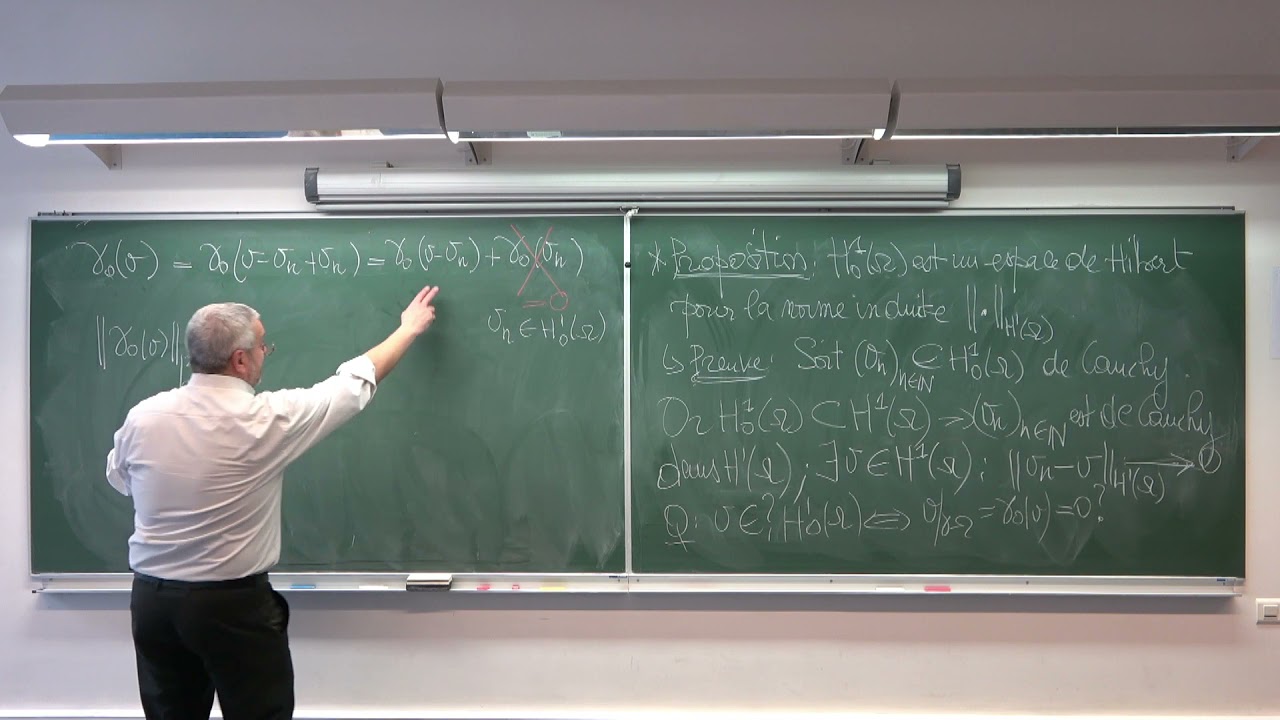 γ₀(v) = γ₀(v-vₙ+vₙ) = γ₀(v-vₙ) + γ₀(vₙ)
= 0
vₙ ∈ H¹₀(Ω)
‖γ₀(v)‖
* Proposition: H¹₀(Ω) est un espace de Hilbert
pour la norme induite ‖·‖_{H¹(Ω)}
↳ Preuve: Soit (vₙ)_{n∈ℕ} ∈ H¹₀(Ω) de Cauchy.
Or H¹₀(Ω) ⊂ H¹(Ω) ⇒ (vₙ)_{n∈ℕ} est de Cauchy
dans H¹(Ω), ∃ v ∈ H¹(Ω) : ‖vₙ-v‖_{H¹(Ω)} → 0
Q: v ∈? H¹₀(Ω) ⇔ v/∂Ω = γ₀(v) = 0?